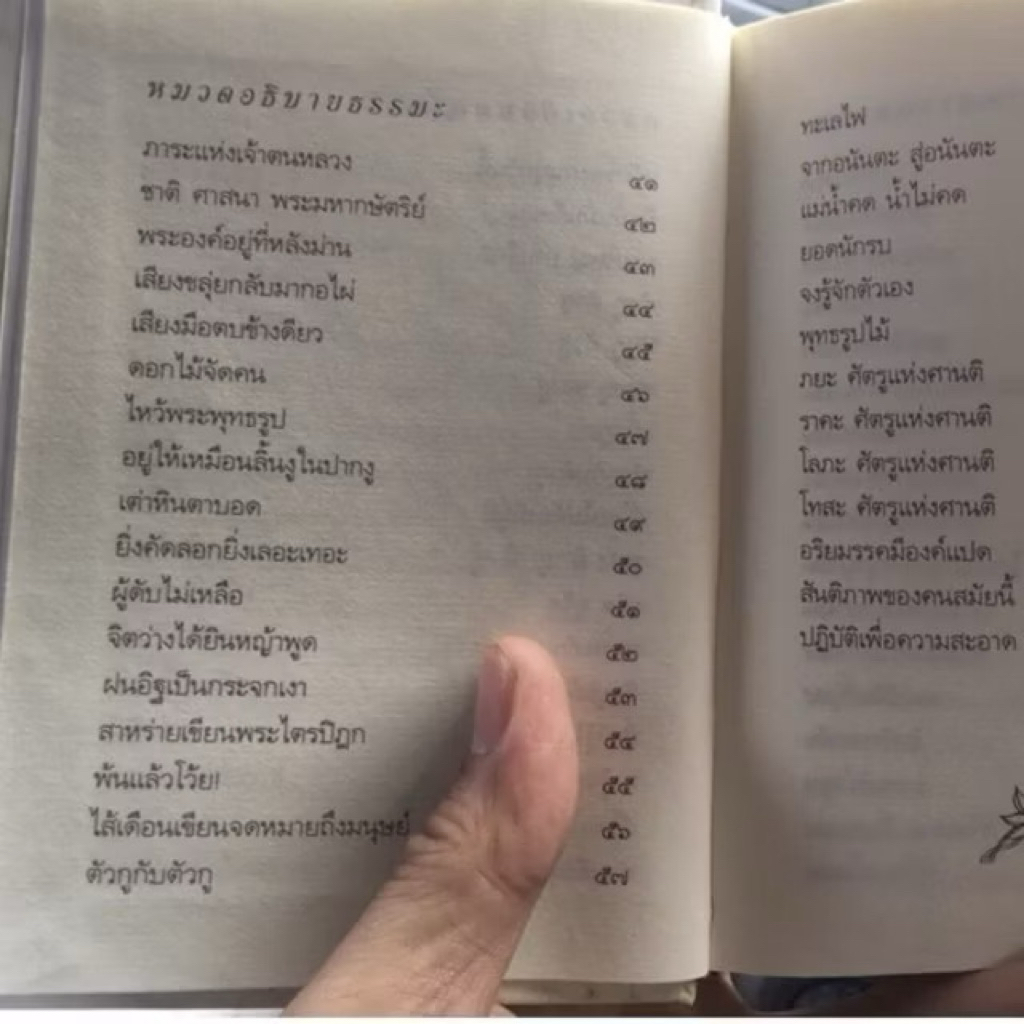 หมวดอธิบายธรรมะ
ภาระแห่งเจ้าตนหลวง ๔๑
ชาติ ศาสนา พระมหากษัตริย์ ๔๒
พระองค์อยู่ที่หลังม่าน ๔๓
เสียงขลุ่ยกลับมากอไผ่ ๔๔
เสียงมือตบข้างเดียว ๔๕
ดอกไม้จัดคน ๔๖
ไหว้พระพุทธรูป ๔๗
อยู่ให้เหมือนลิ้นงูในปากงู ๔๘
เต่าหินตาบอด ๔๙
ยิ่งคัดลอกยิ่งเลอะเทอะ ๕๐
ผู้ดับไม่เหลือ ๕๑
จิตว่างได้ยินหญ้าพูด ๕๒
ฝนอิฐเป็นกระจกเงา ๕๓
สาหร่ายเขียนพระไตรปิฎก ๕๔
พ้นแล้วโว้ย! ๕๕
ไส้เดือนเขียนจดหมายถึงมนุษย์ ๕๖
ตัวกูกับตัวกู ๕๗
ทะเลไฟ
จากอนันตะ สู่อนันตะ
แม่น้ำคด น้ำไม่คด
ยอดนักรบ
จงรู้จักตัวเอง
พุทธรูปไม้
ภยะ ศัตรูแห่งศานติ
ราคะ ศัตรูแห่งศานติ
โลภะ ศัตรูแห่งศานติ
โทสะ ศัตรูแห่งศานติ
อริยมรรคมีองค์แปด
สันติภาพของคนสมัยนี้
ปฏิบัติเพื่อความสะอาด